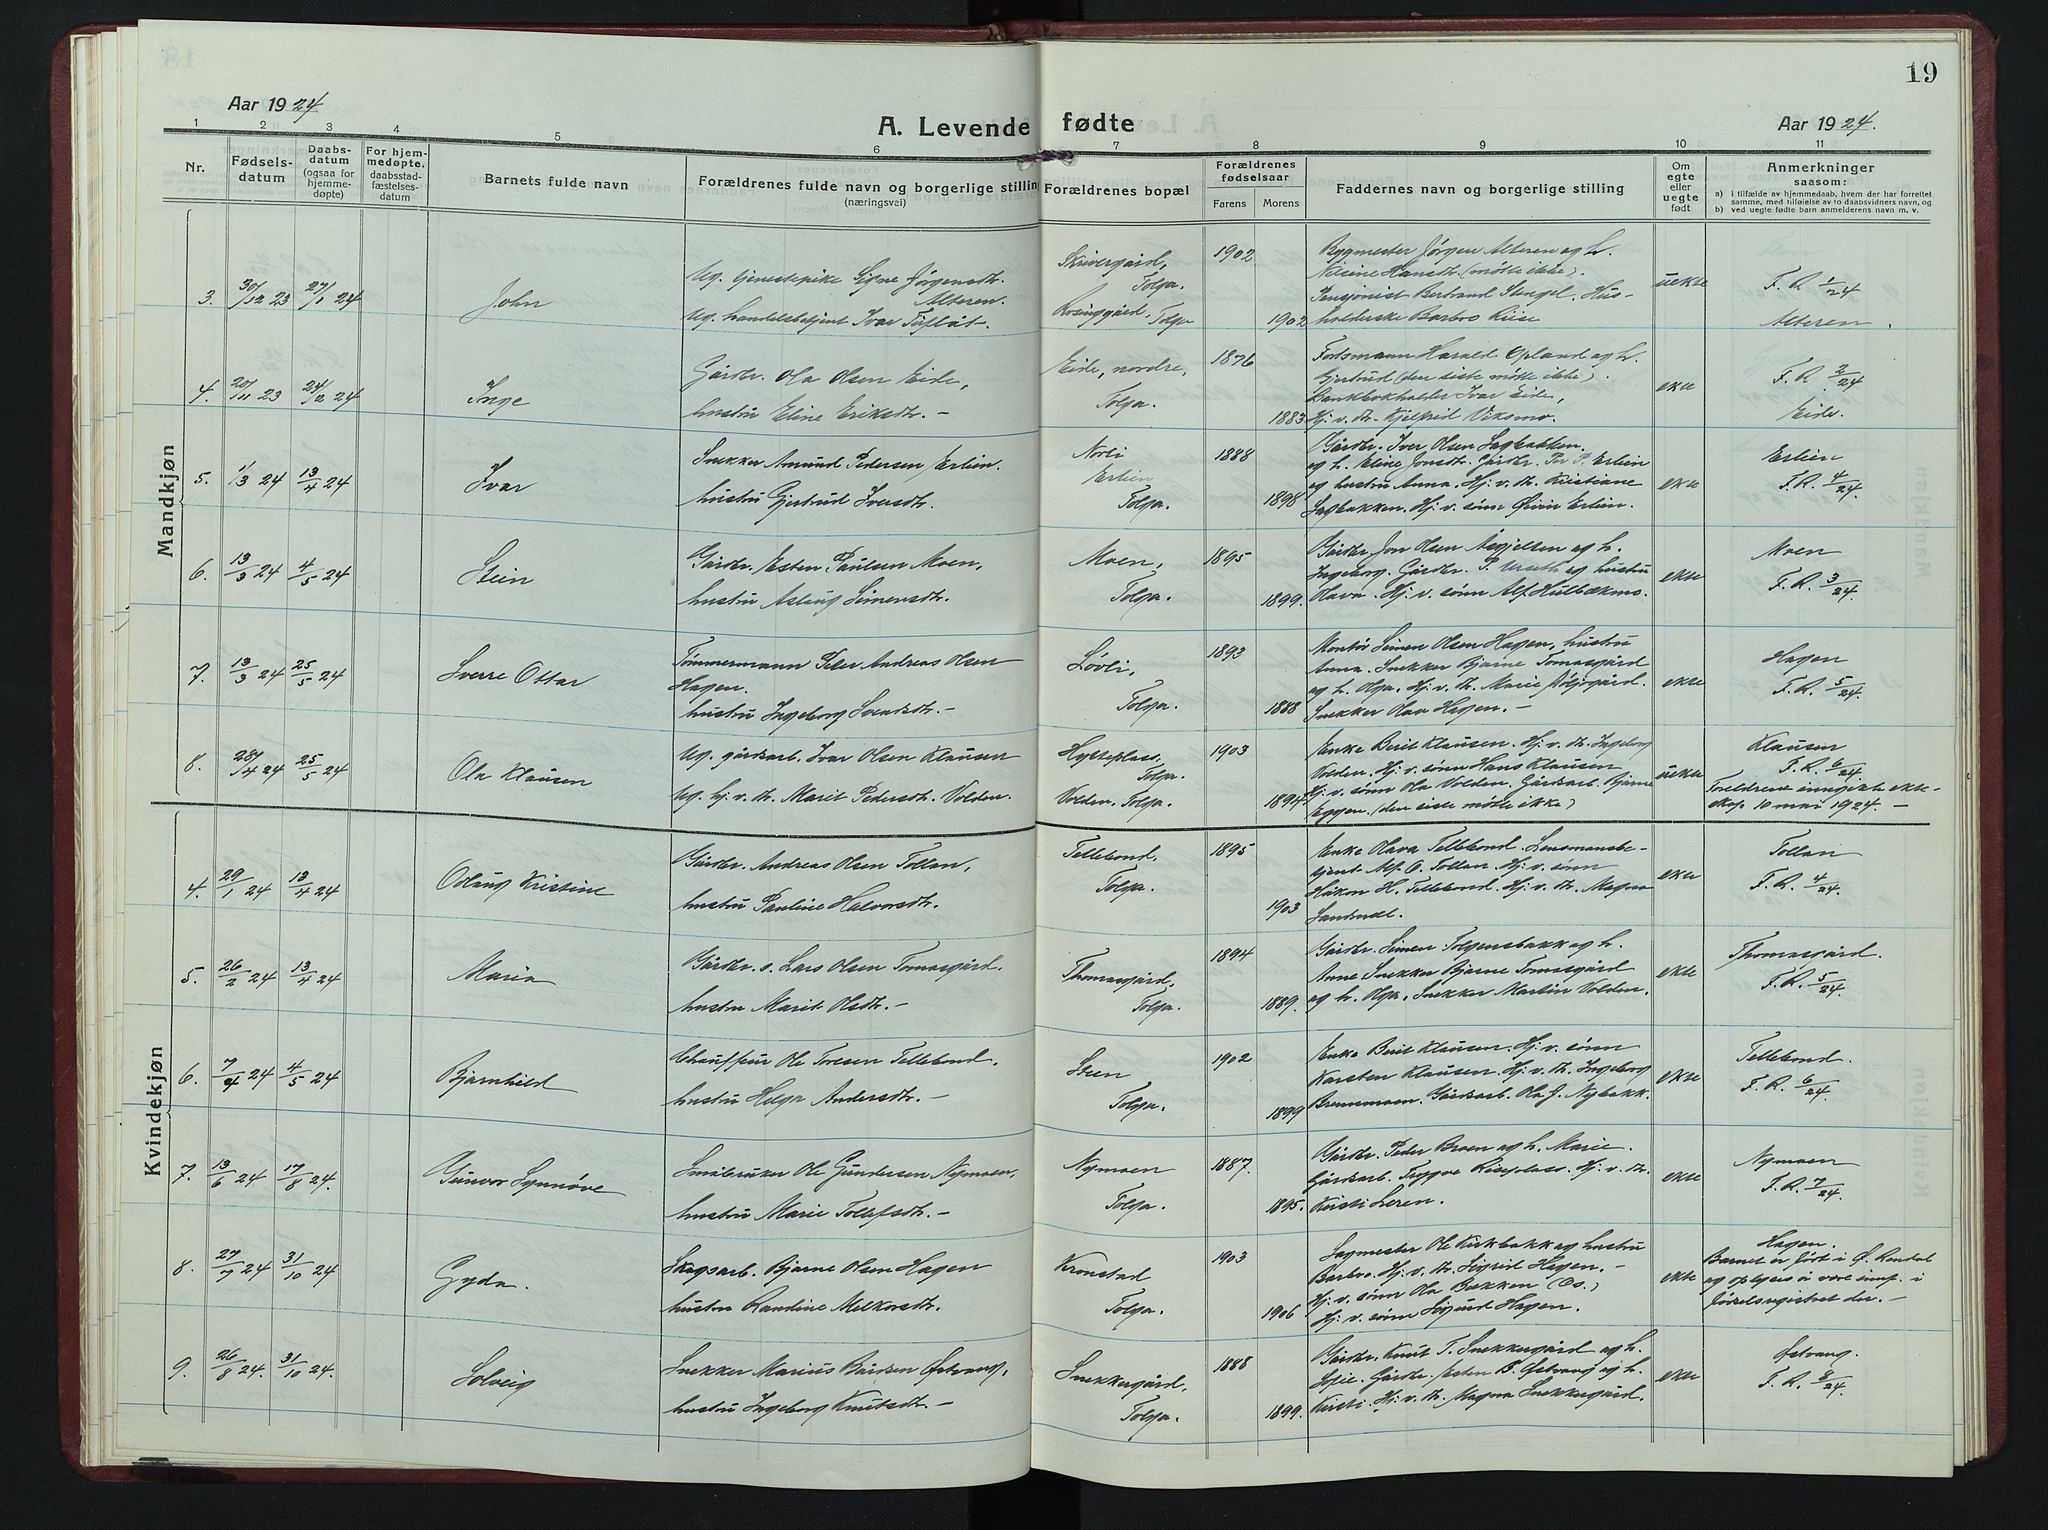 19
Aar 1924
A. Levende fødte
Aar 1924.
1 2 3 4 5 6 7 8 9 10 11
Nr.
Fødselsdatum
Daabsdatum
(ogsaa for hjemmedøpte)
For hjemmedøpte, daabsstadfæstelsesdatum
Barnets fulde navn
Forældrenes fulde navn og borgerlige stilling
(næringsvei)
Forældrenes bopæl
Forældrenes fødselsaar
Farens Morens
Faddernes navn og borgerlige stilling
Om egte eller uegte født
Anmerkninger
saasom:
a) i tilfælde av hjemmedaab, hvem der har forrettet
samme, med tilføielse av to daabsvidners navn, og
b) ved uegte fødte barn anmelderens navn m. v.
Mandkjøn
3. 30/12 23 27/1 24 John
Ug. tjenestepike Signe Jørgensdtr. Alteren.
Ug. handelsbetjent Ivar Tuflåt.
Skrivergård, Tolga.
Rosinggård, Tolga
1902 1902
Bygmester Jørgen Alteren og h.
Nilsine Hansdtr. (møtte ikke).
Pensjonist Bertrand Stengel. Hus-
holderske Barbro Riise
uekte
F. R. 1/24
Alteren.
4. 20/11 23 24/2 24 Inge
Gårdbr. Ola Olsen Eide,
hustru Eline Eriksdtr. -
Eide, nordre,
Tolga.
1876 1883
Fodsmann Harald Opland og h.
Gjertrud (den siste møtte ikke).
Bankbokholder Ivar Eide,
Hj. v. dtr. Kjelfrid Viksmo.
ekte
F. R. 2/24
Eide.
5. 1/3 24 13/4 24 Ivar
Snekker Amund Pedersen Erlien.
hustru Gjertrud Iversdtr.
Norli
Erlien
Tolga.
1888 1898
Gårdbr. Iver Olsen Sagbakken
og h. Eline Jonsdtr. Gårdbr. Per P. Erlien
og hustru Anna. Hj. v. dtr. Kristiane
Sagbakken. Hj. v. sønn Øivin Erlien.
ekte
Erlien
F. R. 4/24.
6. 13/3 24 4/5 24 Stein
Gårdbr. Esten Paulsen Moen,
hustru Aslaug Simensdtr.
Moen,
Tolga.
1895 1899.
Gårdbr. Jon Olsen Asgjelten og h.
Ingeborg. Gårdbr. P. Urseth og hustru
Olava. Hj. v. sønn Alf Hulbækmo.
ekte
Moen
F. R. 3/24.
7. 13/3 24 25/5 24 Sverre Ottar
Tømmermann Peder Andreas Olsen
Hagen.
hustru Ingeborg Svendsdtr. -
Løvli,
Tolga.
1893 1888
Montør Simen Olsen Hagen, hustru
Anna. Snekker Bjarne Tomasgård
og h. Olga. Hj. v. dtr. Marie
Snekker Olav Hagen. -
ekte
Hagen
F. R. 5/24.
8. 28/4 24 25/5 24 Ola Klausen
Ug. gårdsarb. Ivar Olsen Klausen
Ug. hj. v. dtr. Marit Pedersdtr. Volden.
Hytteplass, Tolga.
Volden. Tolga.
1903 1894
Enke Berit Klausen. Hj. v. dtr. Ingeborg
Volden. Hj. v. sønn Hans Klausen
Hj. v. sønn Ola Volden. Gårdsarb. Bjarne
Eggen. (den siste møtte ikke)
uekte
Klausen
F. R. 6/24.
Foreldrene inngikk ekte-
skap 10 mai 1924. -
Kvindekjøn
4. 29/1 24 13/4 24 Odlaug Kristine
Gårdbr. Andreas Olsen Tollan,
hustru Pauline Halvorsdtr.
Tellebond,
Tolga.
1895 1903
Enke Olava Tellebond. Lensmansbe-
tjent Alf O. Tollan. Hj. v. sønn
Håkon H. Tellebond. Hj. v. dtr. Magna
Sandnæl.
ekte
Tollan
F. R. 4/24.
5. 26/2 24 13/4 24 Maria
Gårdbr. s. Lars Olsen Tomasgård.
hustru Marit Olsdtr. -
Thomasgård,
Tolga.
1894 1889.
Gårdbr. Simen Tolgensbakk og h.
Anne Snekker Bjarne Tomasgård
og h. Olga. Snekker Martin Volden.
ekte
Thomasgård.
F. R. 5/24.
6. 7/4 24 4/5 24 Bjarnhild
Chauffeur Ole Toresen Tellebond.
hustru Helga Andersdtr. -
Steen
Tolga.
1902 1899
Enke Berit Klausen. Hj. v. sønn
Karsten Klausen. Hj. v. dtr. Ingeborg
Brennmoen. Gårdsarb. Ola J. Nybakk.
ekte
Tellebond.
F. R. 6/24.
7. 13/6 24 17/8 24. Gunvor Synnøve
Småbruker Ole Gundersen Nymoen,
hustru Marie Tollefsdtr. -
Nymoen
Tolga.
1887. 1895.
Gårdbr. Peder Broen og h. Marie.
Gårdsarb. Trygve Riseplass. Hj. v. dtr.
Kirsti Leren.
ekte
Nymoen
F. R. 7/24.
8. 27/7 24 31/10 24 Gyda.
Skogsarb. Bjarne Olsen Hagen
hustru Randine Melkorsdtr.
Kronstad
Tolga.
1903 1906
Sagmester Ole Kirkbakk og hustru
Barbro. Hj. v. dtr. Sigrid Hagen. -
Hj. v. sønn Ola Bakken (Os.)
Hj. v. sønn Sigurd Hagen.
ekte
Hagen.
Barnet er født i Ø. Rendal
og oplyses å være innf. i
fødselsregistret der. -
9. 26/8 24. 31/10 24. Solveig
Snekker Marius Bårdsen Østvang,
hustru Ingeborg Knutsdtr. -
Snekkergård,
Tolga.
1888 1899.
Gårdbr. Knut T. Snekkergård og h.
Sofie. Gårdbr. Esten B. Østvang og h.
Kirsti. Hj. v. dtr. Magna Snekkergård.
ekte
Østvang.
F. R. 8/24.